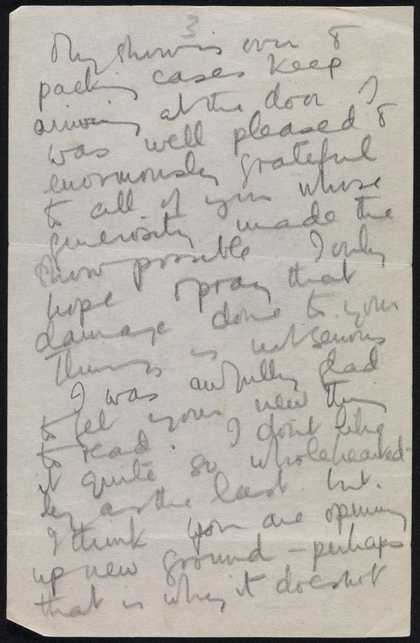 3
My show is over &
packing cases keep
arriving at the door I
was well pleased &
enormously grateful
to all of you whose
generosity made the
show possible I only
hope & pray that
damage done to your
things is not serious
I was awfully glad
to get your new thing
to read. I don't like
it quite so wholehearted-
ly as the last but.
I think you are opening
up new ground – perhaps
that is why it does not